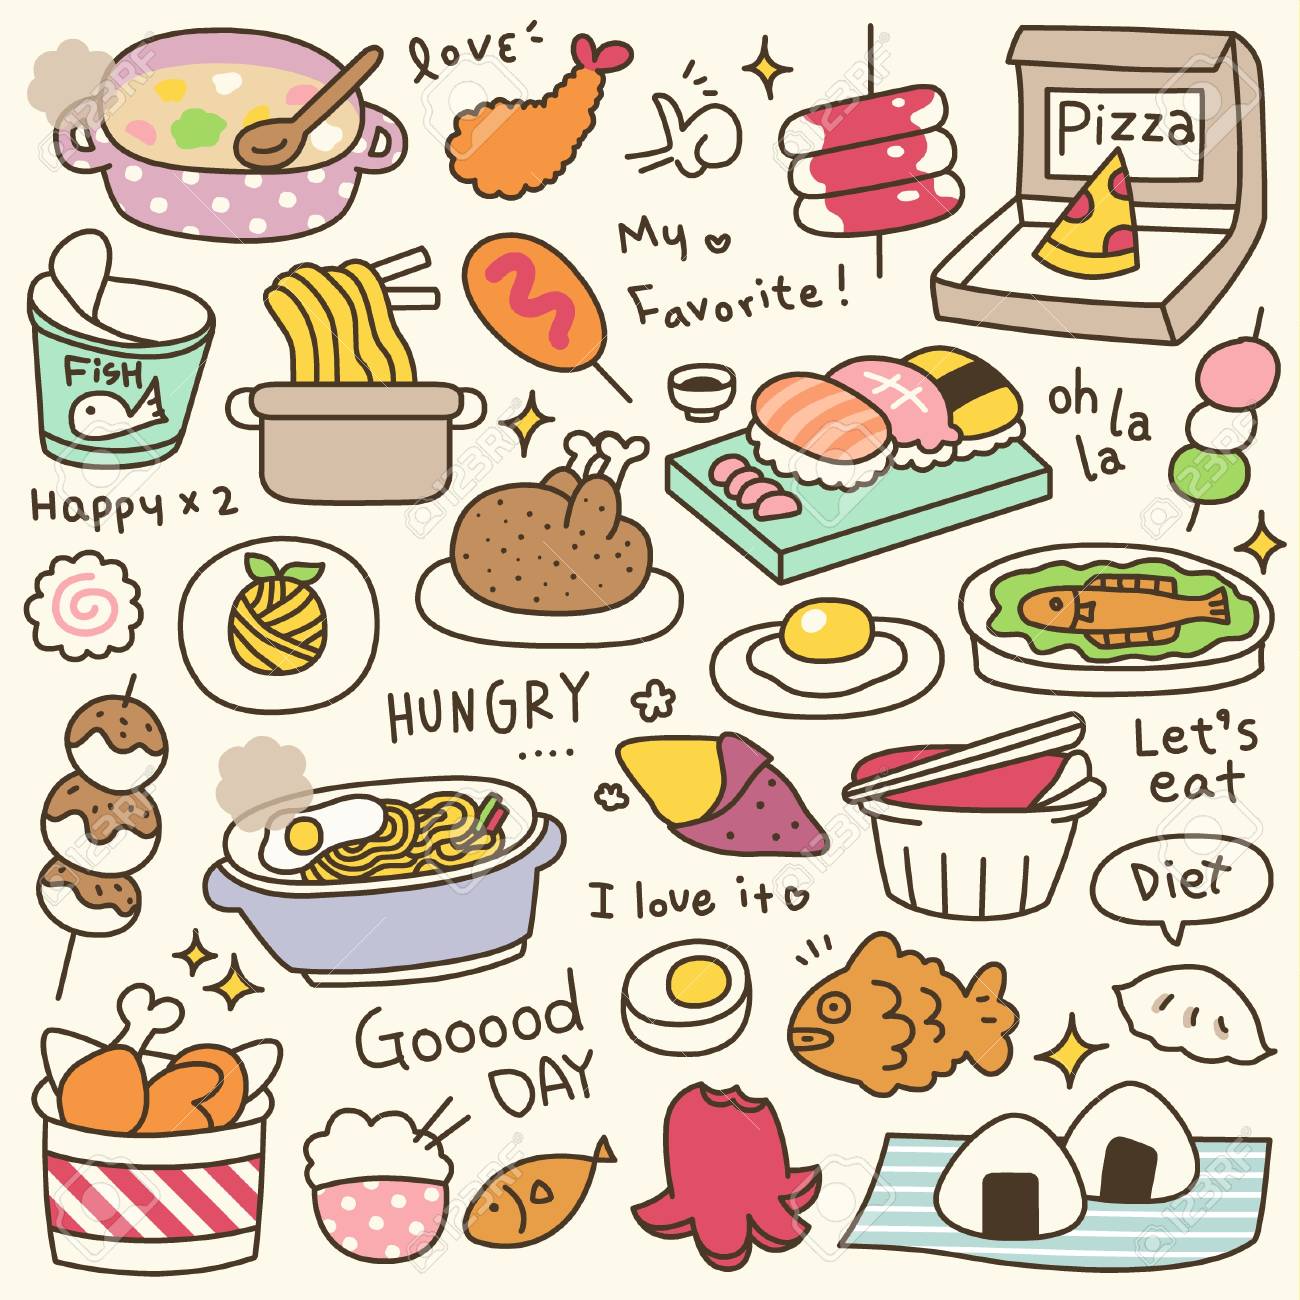 love
Pizza
My
Favorite!
FisH
oh
la
la
Happy x 2
HUNGRY
....
Let's
eat
I love it
Diet
Gooood
DAY
123RF